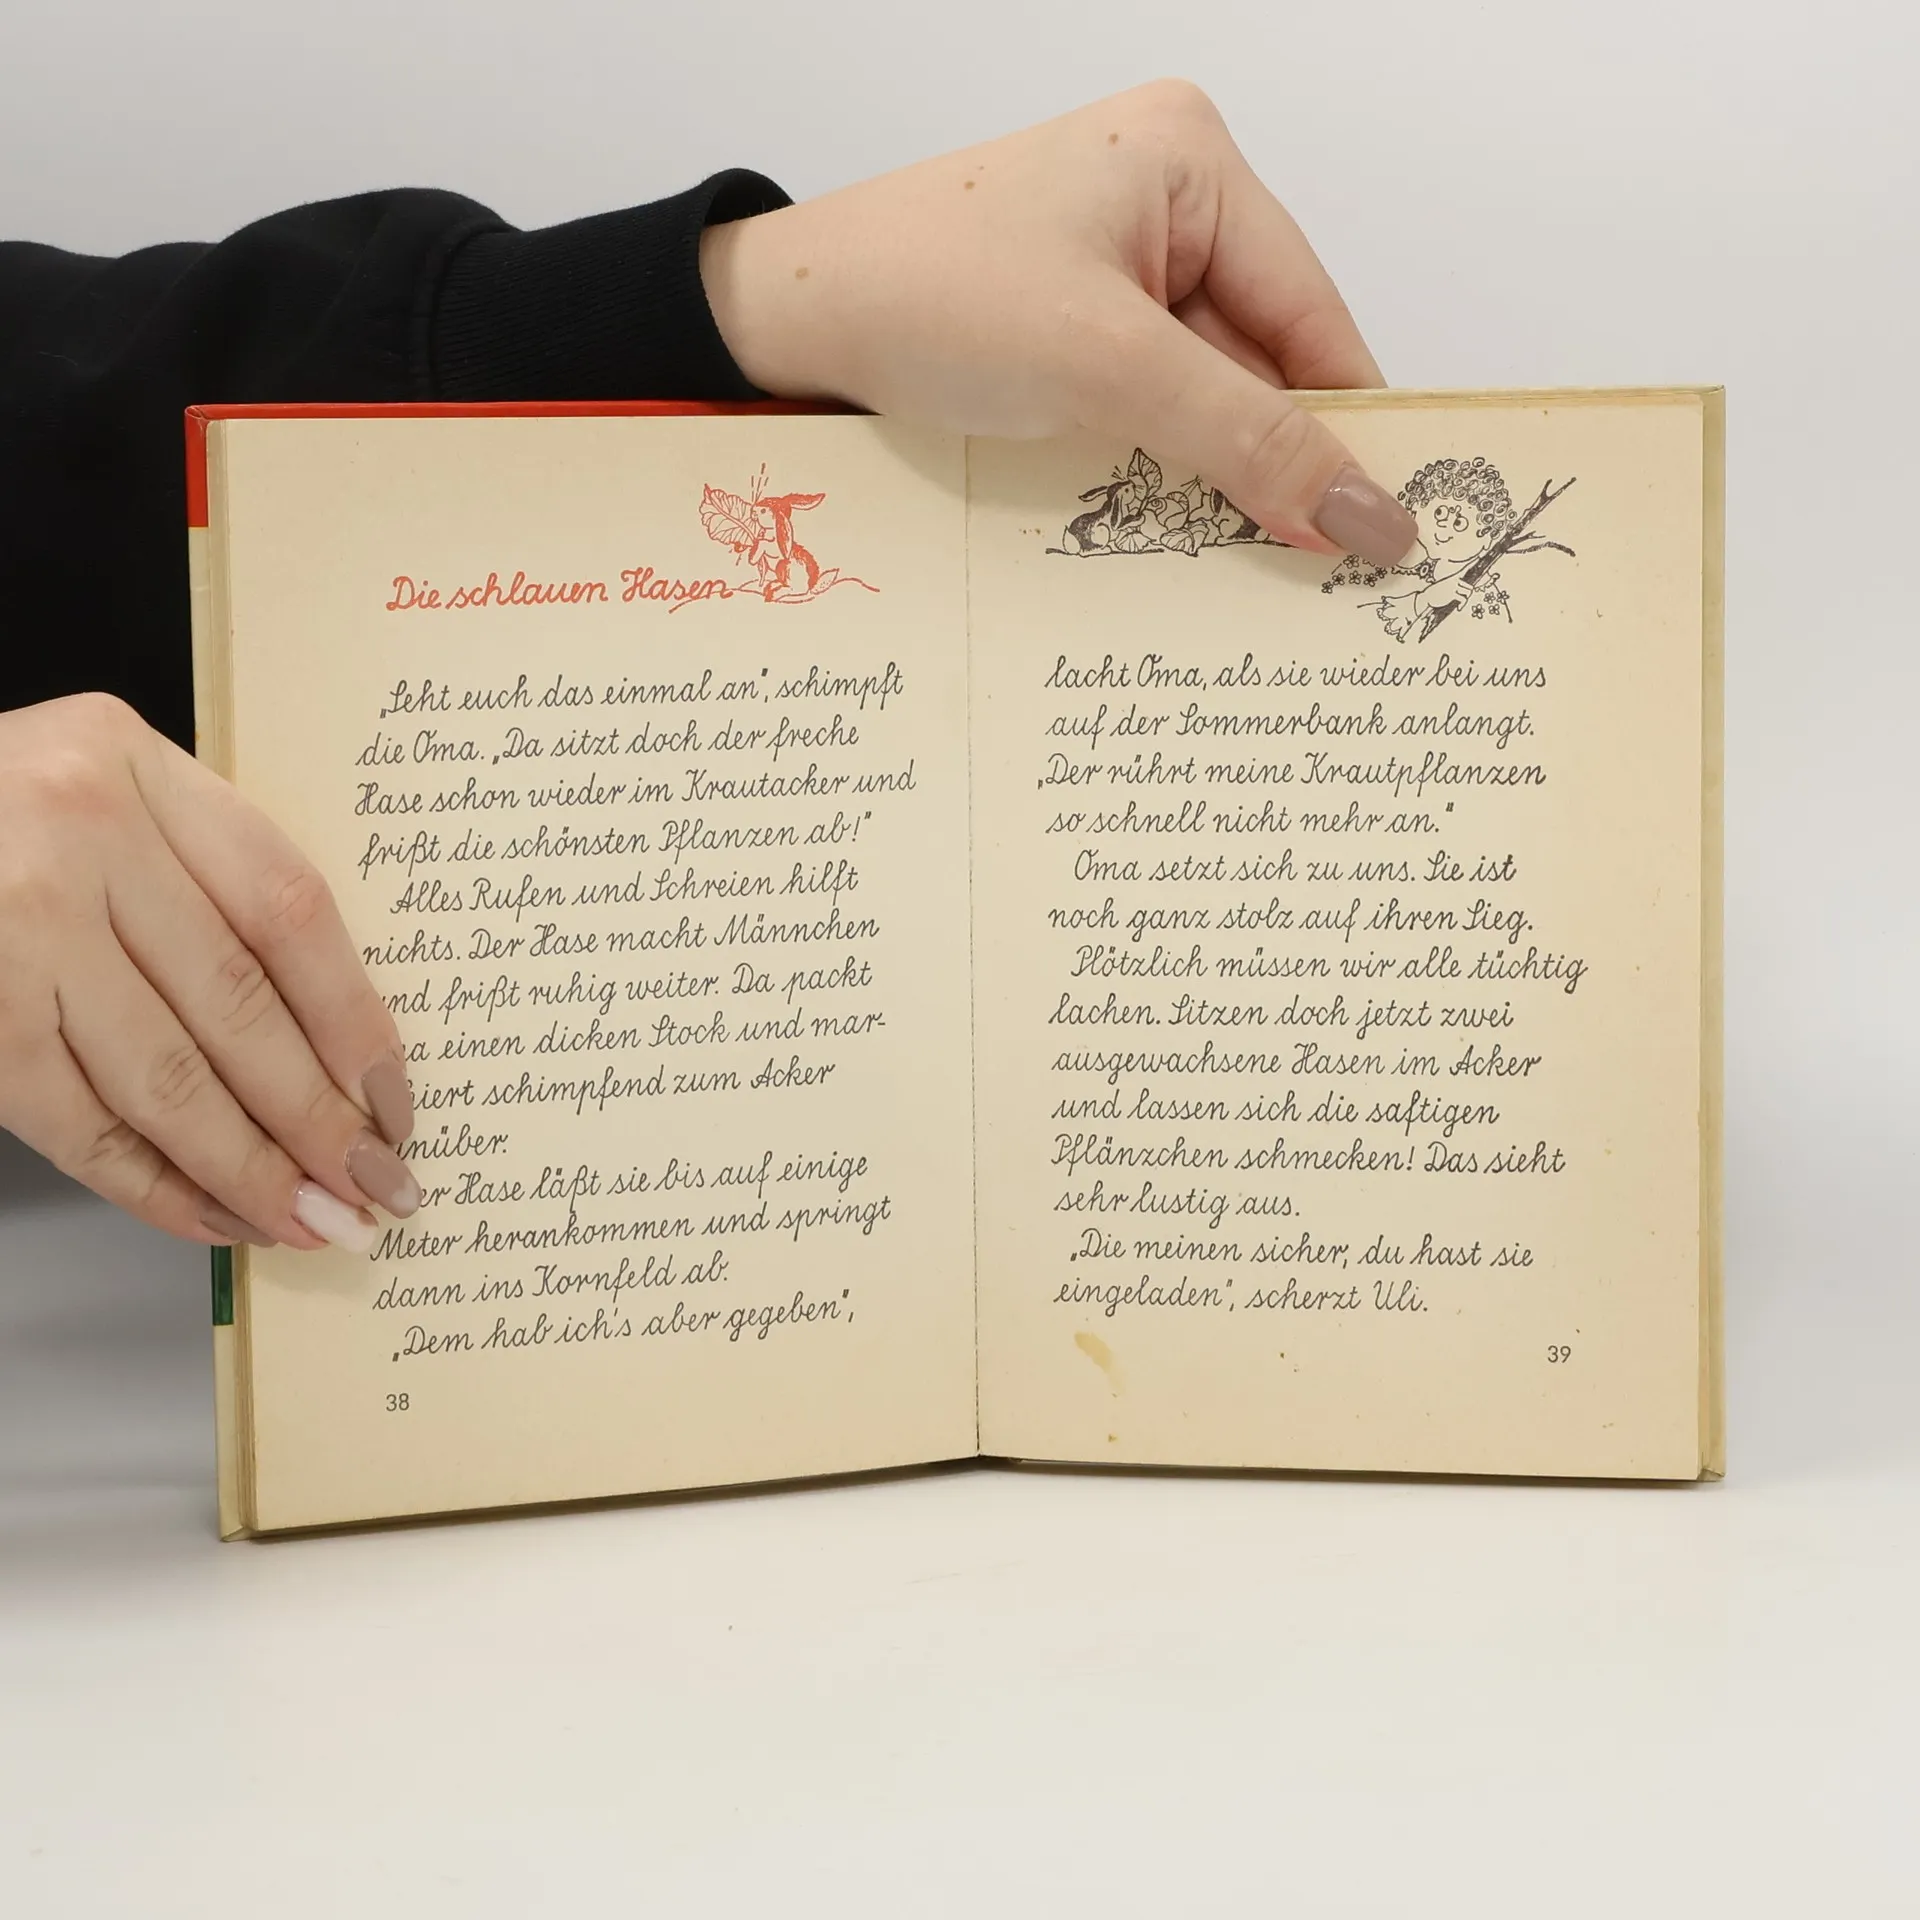 Die schlauen Hasen
„Seht euch das einmal an“, schimpft
die Oma. „Da sitzt doch der freche
Hase schon wieder im Krautacker und
frißt die schönsten Pflanzen ab!“
Alles Rufen und Schreien hilft
nichts. Der Hase macht Männchen
und frißt ruhig weiter. Da packt
einen dicken Stock und mar-
schimpfend zum Acker
Hase läßt sie bis auf einige
Meter herankommen und springt
dann ins Kornfeld ab.
„Dem hab ich's aber gegeben“,
38
lacht Oma, als sie wieder bei uns
auf der Sommerbank anlangt.
„Der rührt meine Krautpflanzen
so schnell nicht mehr an.“
Oma setzt sich zu uns. Sie ist
noch ganz stolz auf ihren Sieg.
Plötzlich müssen wir alle tüchtig
lachen. Sitzen doch jetzt zwei
ausgewachsene Hasen im Acker
und lassen sich die saftigen
Pflänzchen schmecken! Das sieht
sehr lustig aus.
„Die meinen sicher, du hast sie
eingeladen“, scherzt Uli.
39